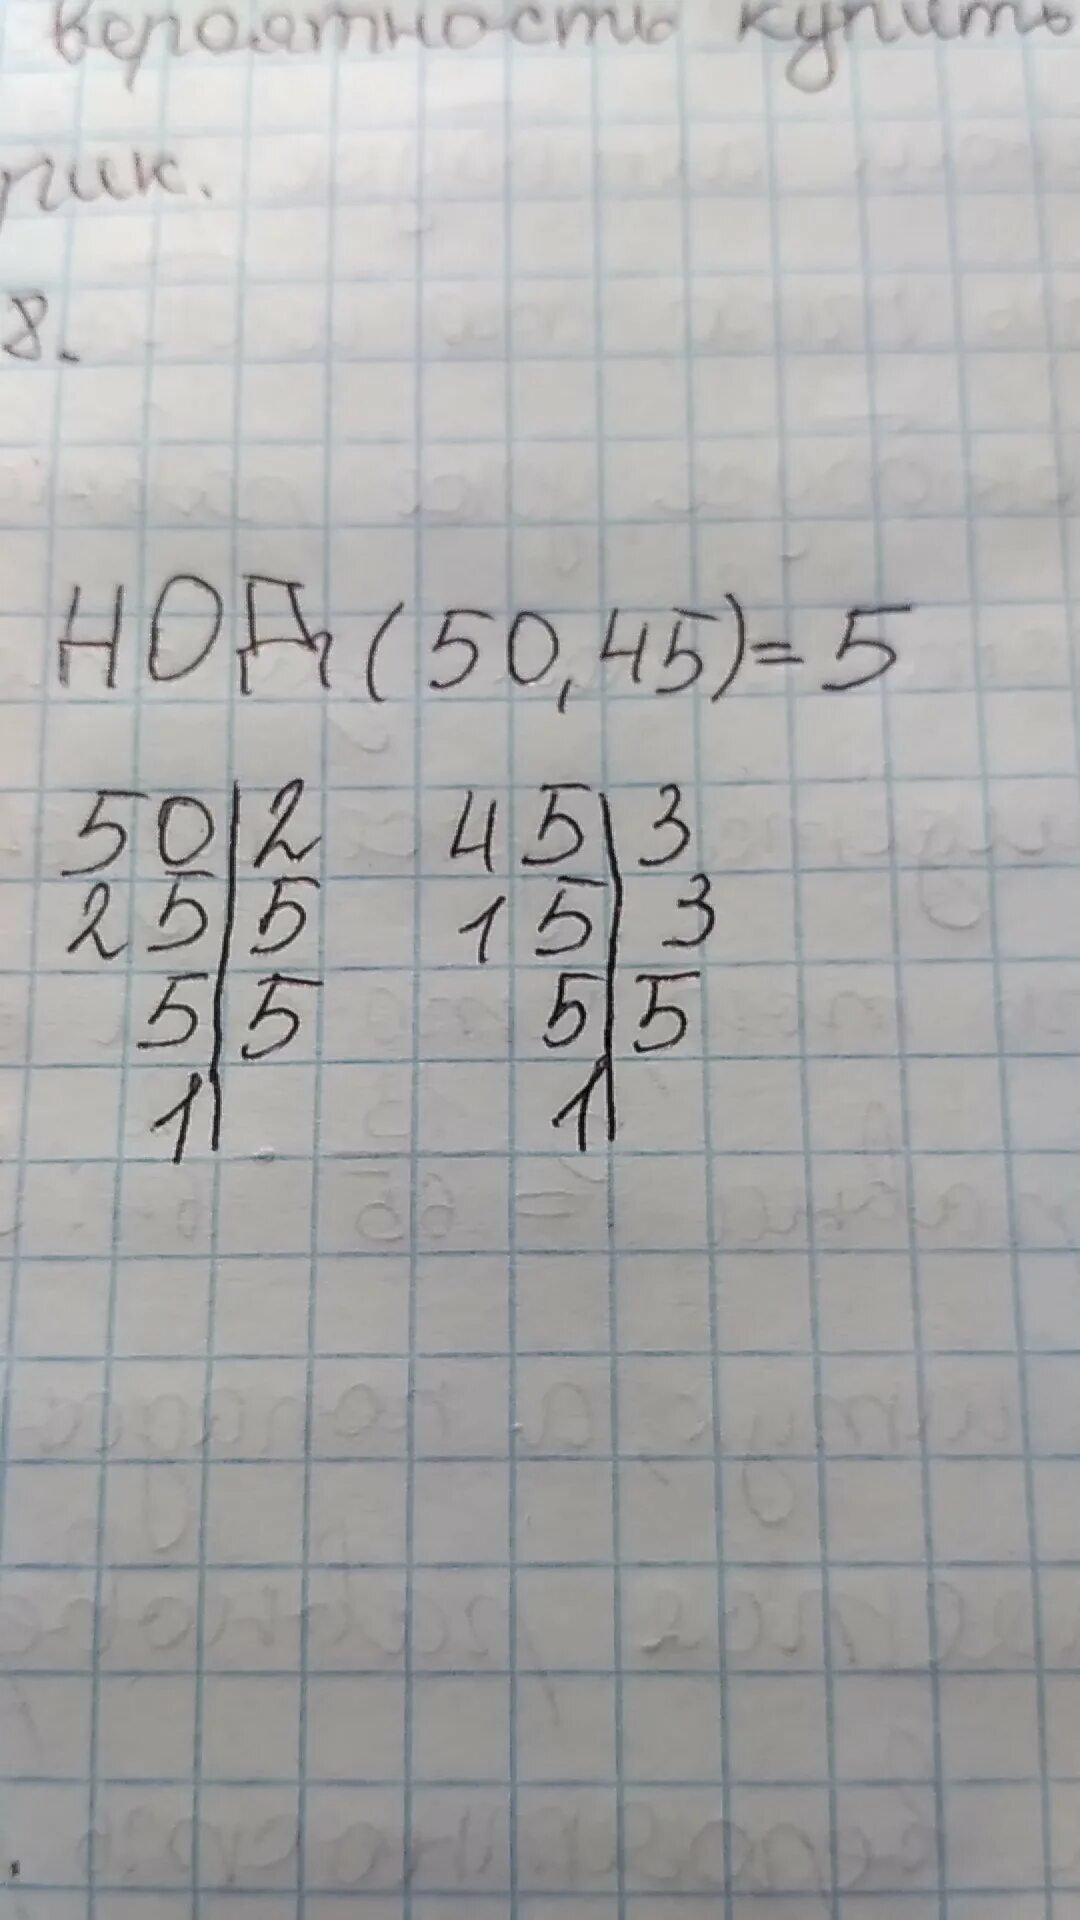 вероятность купить
8.
НОД(50,45)=5
50|2 45|3
25|5 15|3
5|5 5|5
1| 1|